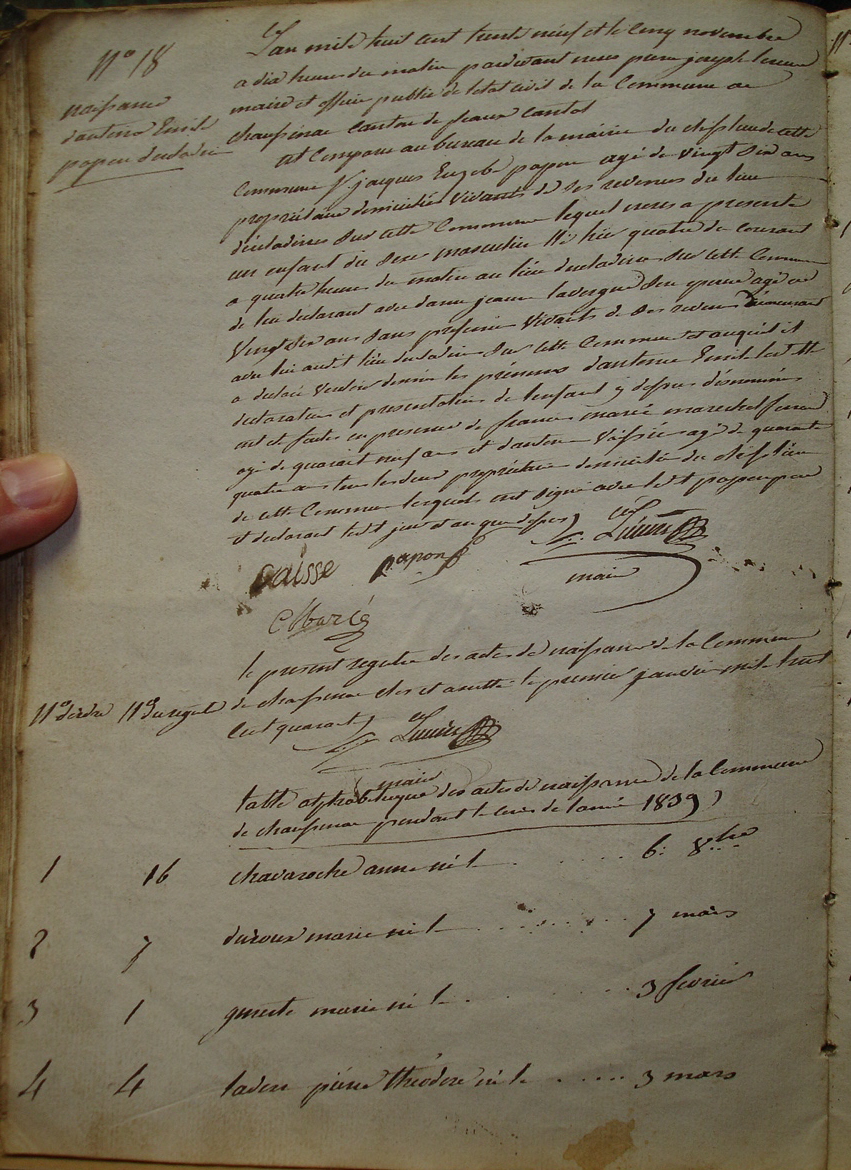 N° 18
naissance
d'antoine Emile
papon ducladin
L'an mile huit cent trente neuf et le cinq novembre
a dix heures du matin pardevant nous pierre joseph
maire et officier public de l'etat civil de la Commune de
chaussenac Canton de
est Comparu au bureau de la mairie du cheflieu de cette
Commune Sr jacques Euzebe papon agé de vingt six ans
propriétaire domicilié Vivant de Ses revenus du lieu
Sur cette Commune lequel nous a presenté
un enfant du Sexe masculin né hier quatre du courant
a quatre heures du matin au lieu Sur cette Commune
de lui declarant avec dame jeanne lavergne Son epouse agée de
Vingt Six ans Sans profession Vivant de Ses revenus demeurant
avec lui audit lieu Sur cette Commune et auquel il
a declaré Vouloir donner les prenoms d'antoine Emile les dittes
declaration et presentation de l'enfant y dessus dénommé
ont été faites en presence de françois marié marechal ferrand
agé de quarante neuf ans et d'antoine Vaisse agé de quarante
quatre ans tous les deux propriétaires domiciliés du cheflieu
de cette Commune lesquels ont signé avec ledit papon pere
et declarant ledit jour et an que dessus
vaisse papon
maire
Marié
le present registre des actes de naissance de la Commune
de chaussenac clos et arretté le premier janvier mile huit
Cent quarante
maire
N° d'ordre N° du regist
table alphabetique des actes de naissance de la Commune
de chaussenac pendant le cours de l'année 1839
1 16 chavaroche anne né le 6 8bre
2 7 duroux marie né le 7 mars
3 1 marie né le 3 fevrier
4 4 pierre théodore né le 3 mars